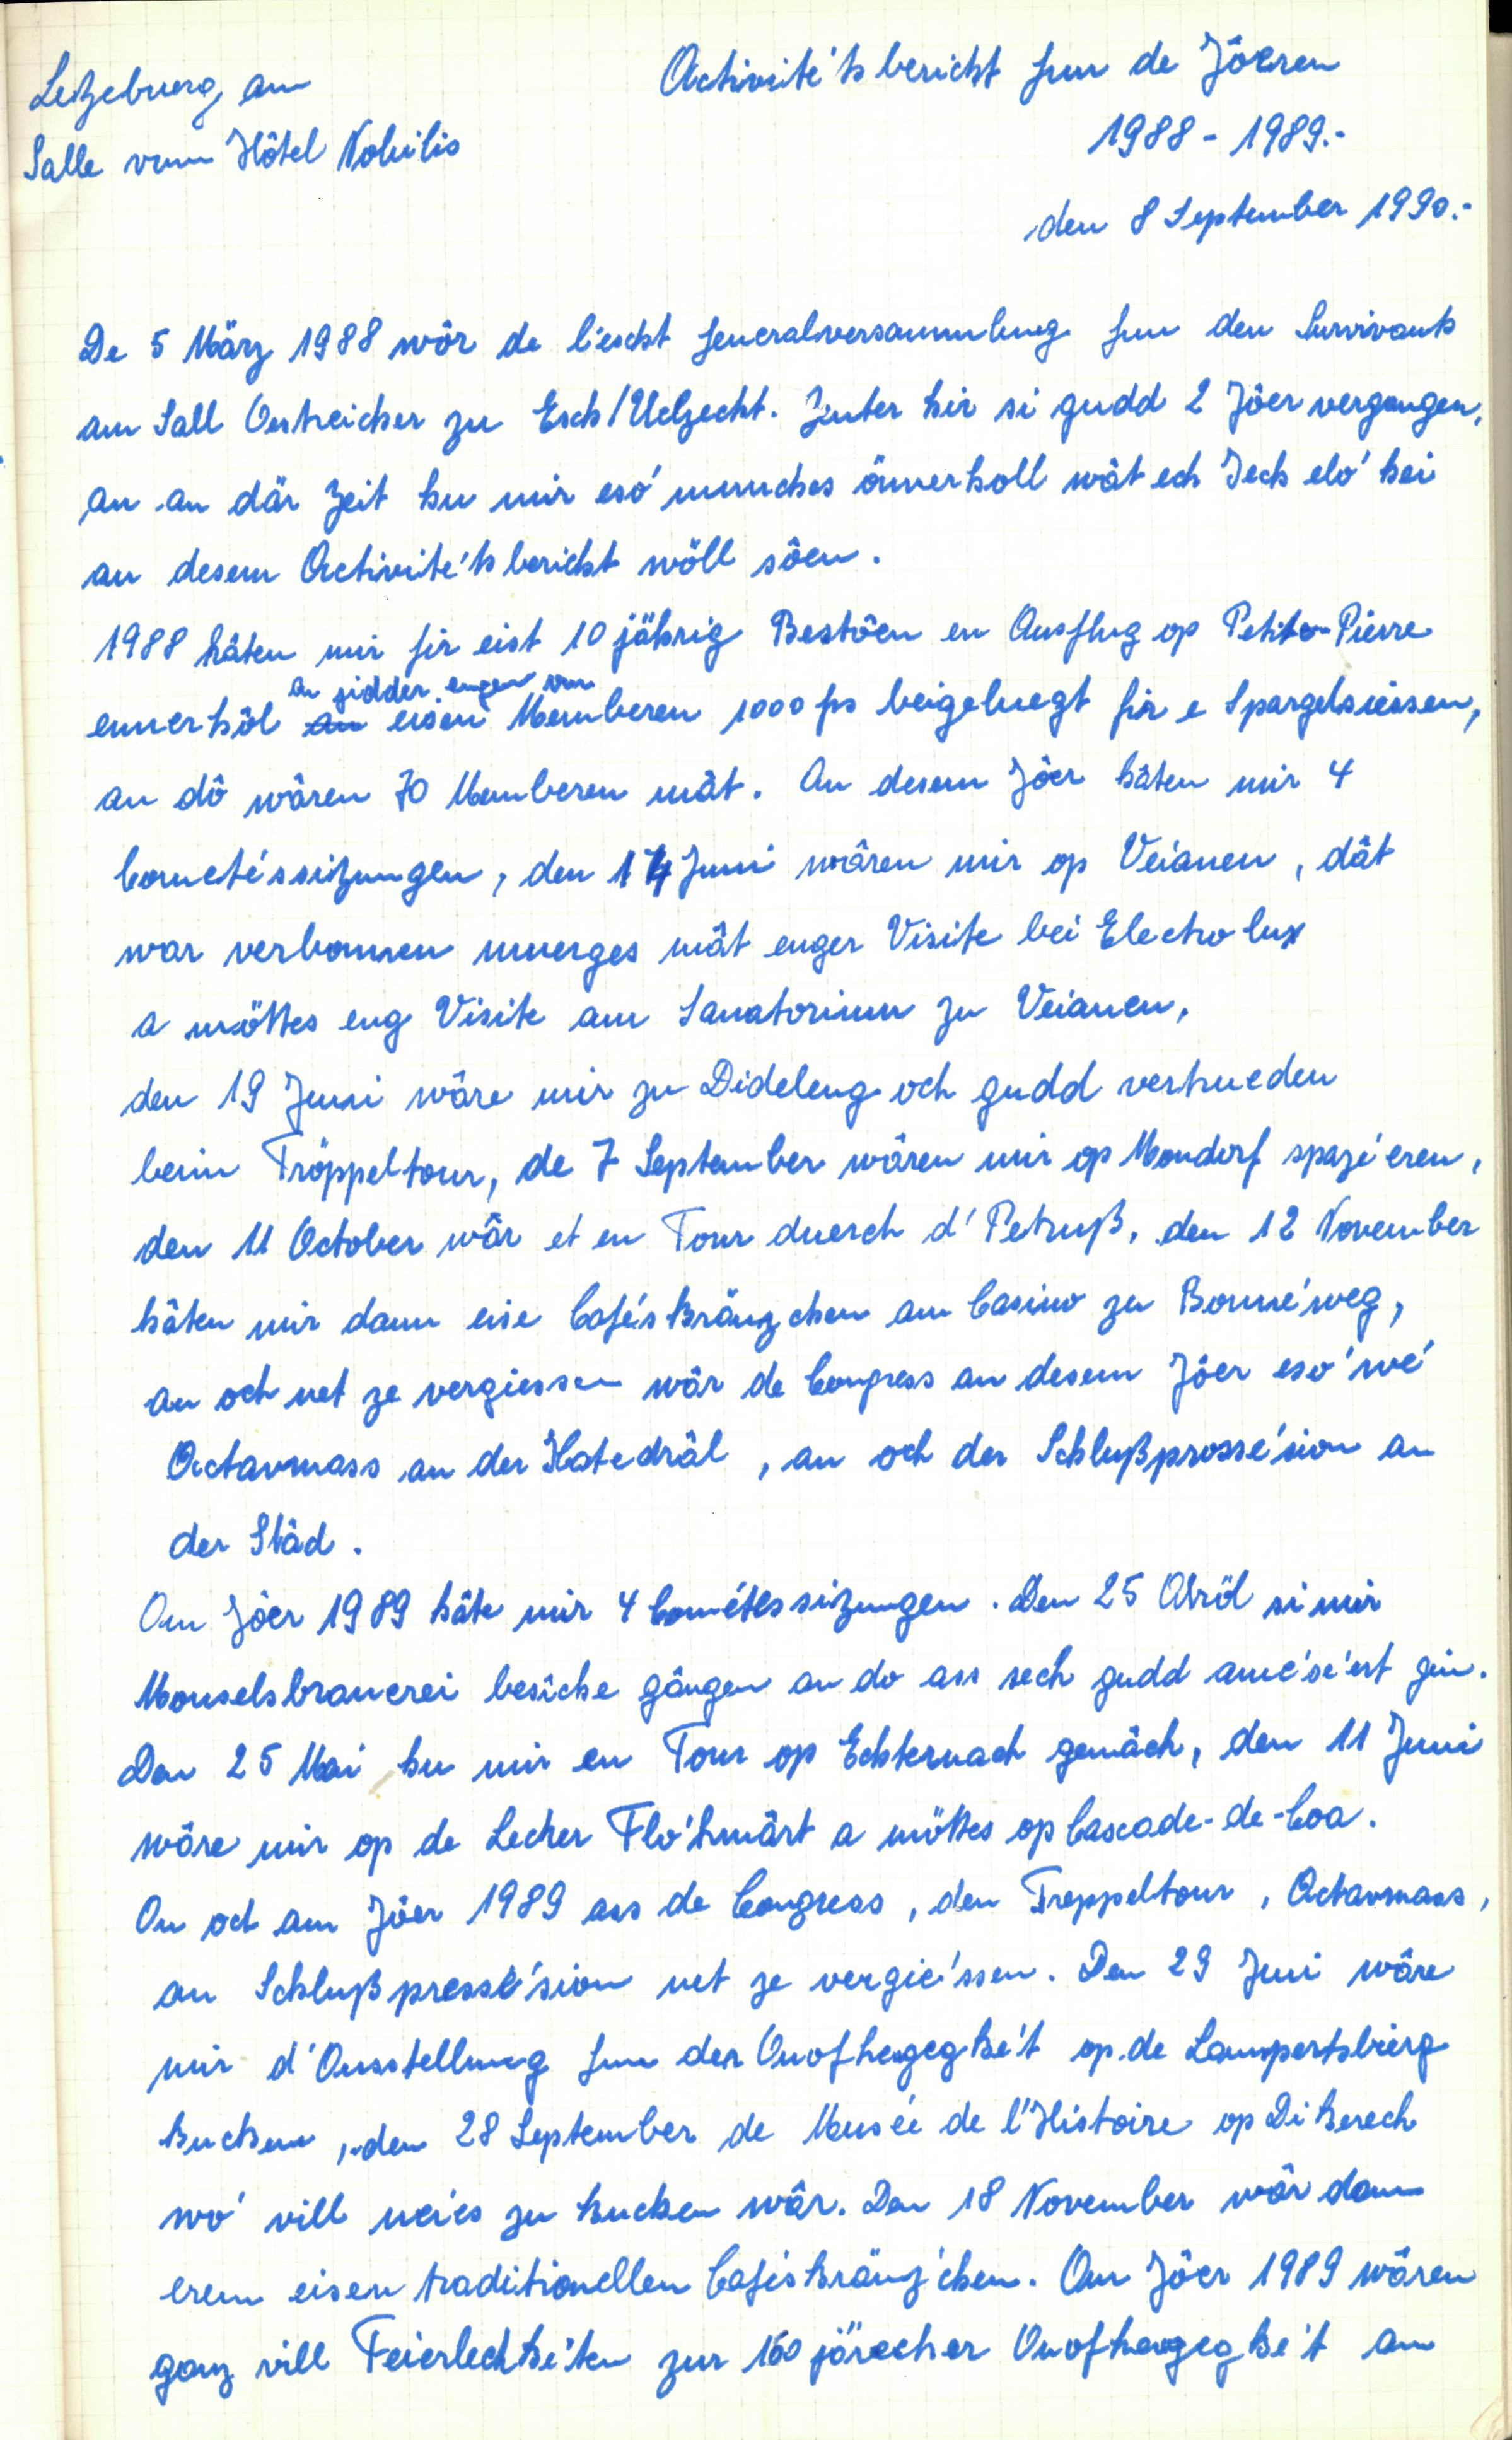 Letzeburg, am
Salle vum Hôtel Nobilis
Activite'tsbericht fun de Jôeren
1988 - 1989.-
den 8 September 1990.-
De 5 März 1988 wôr de lescht Generalversammlung fun den Survivants
am Sall Oestreicher zu Esch/Uelzecht. Zenter hir si gudd 2 Jôer vergangen,
an an där Zeit hu mir eso' munches ömmerholl wât ech Iech elo' hei
an desem Activite'tsbericht wöll sôen.
1988 hâten mir fir eist 10 jährig Bestôen en Ausflug op Petite-Pierre
an jidder engem vun
ennerhôl an eisen Memberen 1000 fs beigeluegt fir e Spargelsiessen,
an dô wâren 70 Memberen mât. An desem Jôer hâten mir 4
Cometéssitzungen, den 14 Juni wâren mir op Veianen, dât
war verbonnen muerges mât enger Visite bei Electrolux
a möttes eng Visite am Sanatorium zu Veianen,
den 19 Juni wâre mir zu Dideleng och gudd vertrueden
beim Tröppeltour, de 7 September wâren mir op Mondorf spazéeren,
den 11 October wâr et en Tour duerch d'Petruß, den 12 November
hâten mir dann eise Cafés Kränzchen am Casino zu Bonne'weg,
an och net ze vergiessen wâr de Congress an desem Jôer eso' wé
Octavmass an der Katedrâl, an och der Schlußprosse'sion an
der Stâd.
Am Jôer 1989 hâte mir 4 Cométessizungen. Den 25 Abröl si mir
Mouselsbrauerei besiche gângen an do ass sech gudd ame'se'ert gin.
Den 25 Mai hu mir en Tour op Echternach gemâch, den 11 Juni
wâre mir op de Lecher Flo'hmârt a möttes op Cascade-de-Coa.
An och am Jôer 1989 ass de Congress, den Treppeltour, Octavmass,
an Schlußpresse'sion net ze vergie'ssen. Den 29 Juni wâre
mir d'Ausstellung fun der Onofhegegke't op de Lampertsbierg
kucken, den 28 September de Musée de l'Histoire op Dikerech
wo' vill neies zu kucken wâr. Den 18 November wâr dann
erem eisen traditionellen Cafés Kränz'chen. Am Jôer 1989 wâren
ganz vill Feierlechke'ten zur 150 järecher Onofhengegke't am